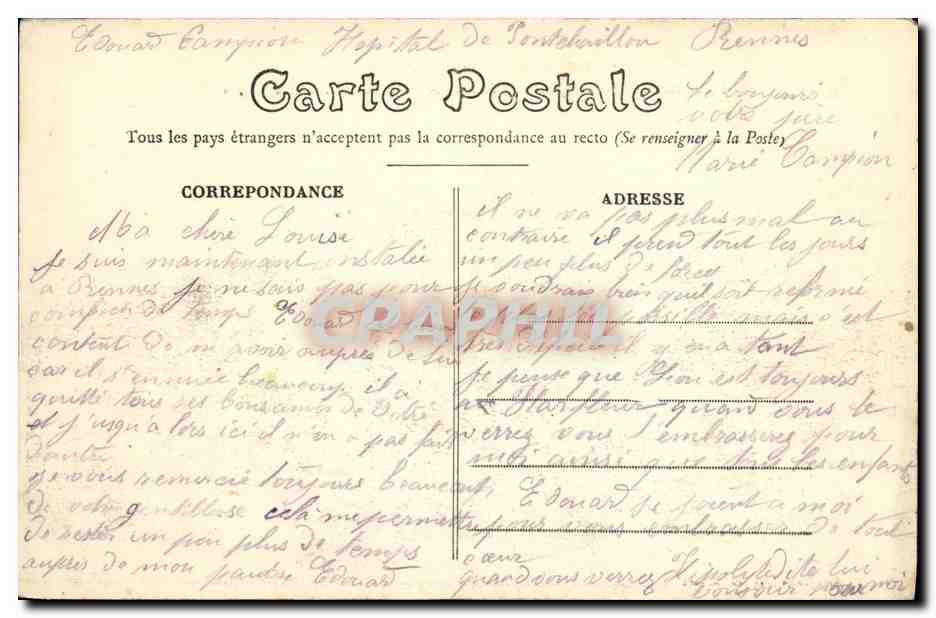 Edouard Campion Hopital de Pontchaillou Rennes
Carte Postale
le bonjour
votre
Marie Campion
Tous les pays étrangers n'acceptent pas la correspondance au recto (Se renseigner à la Poste)
CORREPONDANCE
Ma chère Louise
je suis maintenant instalée
a Rennes je ne sais pas pour
conbien de temps Edouard
content de m avoir aupres de lui
car il s'ennuie beaucoup il a
quitté tous ses bons amis de Vitré
et j'usqu a lors ici il n'en a pas fait
d'autre
je vous remercie toujours beaucoup
de votre gentillesse cela me permettra
de rester un peu plus de temps
aupres de mon pauvre Edouard
ADRESSE
il ne va pas plus mal au
contraire il prend tout les jours
un peu plus de force
je voudrais bien qu'il soit reformé
mais c'est
il y en a tant
je pense que Léon est toujours
a Harfleur quand vous le
verrez vous l'embrasserez pour
moi ainsi que tous les enfants
Edouard se joint a moi
pour vous embrasser de tout
cœur
quand vous verrez Hipolyte dite lui
bonjour pour moi
CPAPHIL